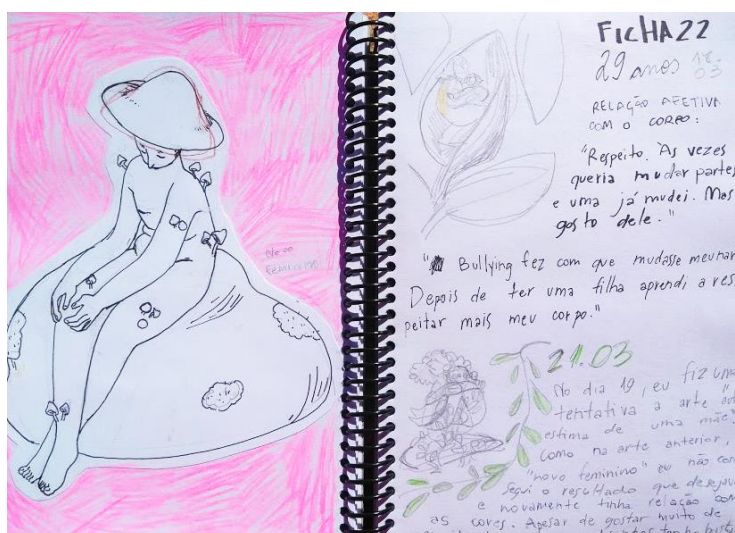 Novo
Feminino
FICHA 22
29 anos 18.
03
RELAÇÃO AFETIVA
COM O CORPO:
"Respeito. As vezes
queria mudar partes
e uma já mudei. Mas
gosto dele."
"Bullying fez com que mudasse meu nar
Depois de ter uma filha aprendi a res
peitar mais meu corpo."
21.03
No dia 19, eu fiz uma
tentativa a arte
estima de uma mãe"
Como na arte anterior,
"novo feminino" eu não con
segui o resultado que desejava
e novamente tinha relação com
as cores. Apesar de gostar muito de